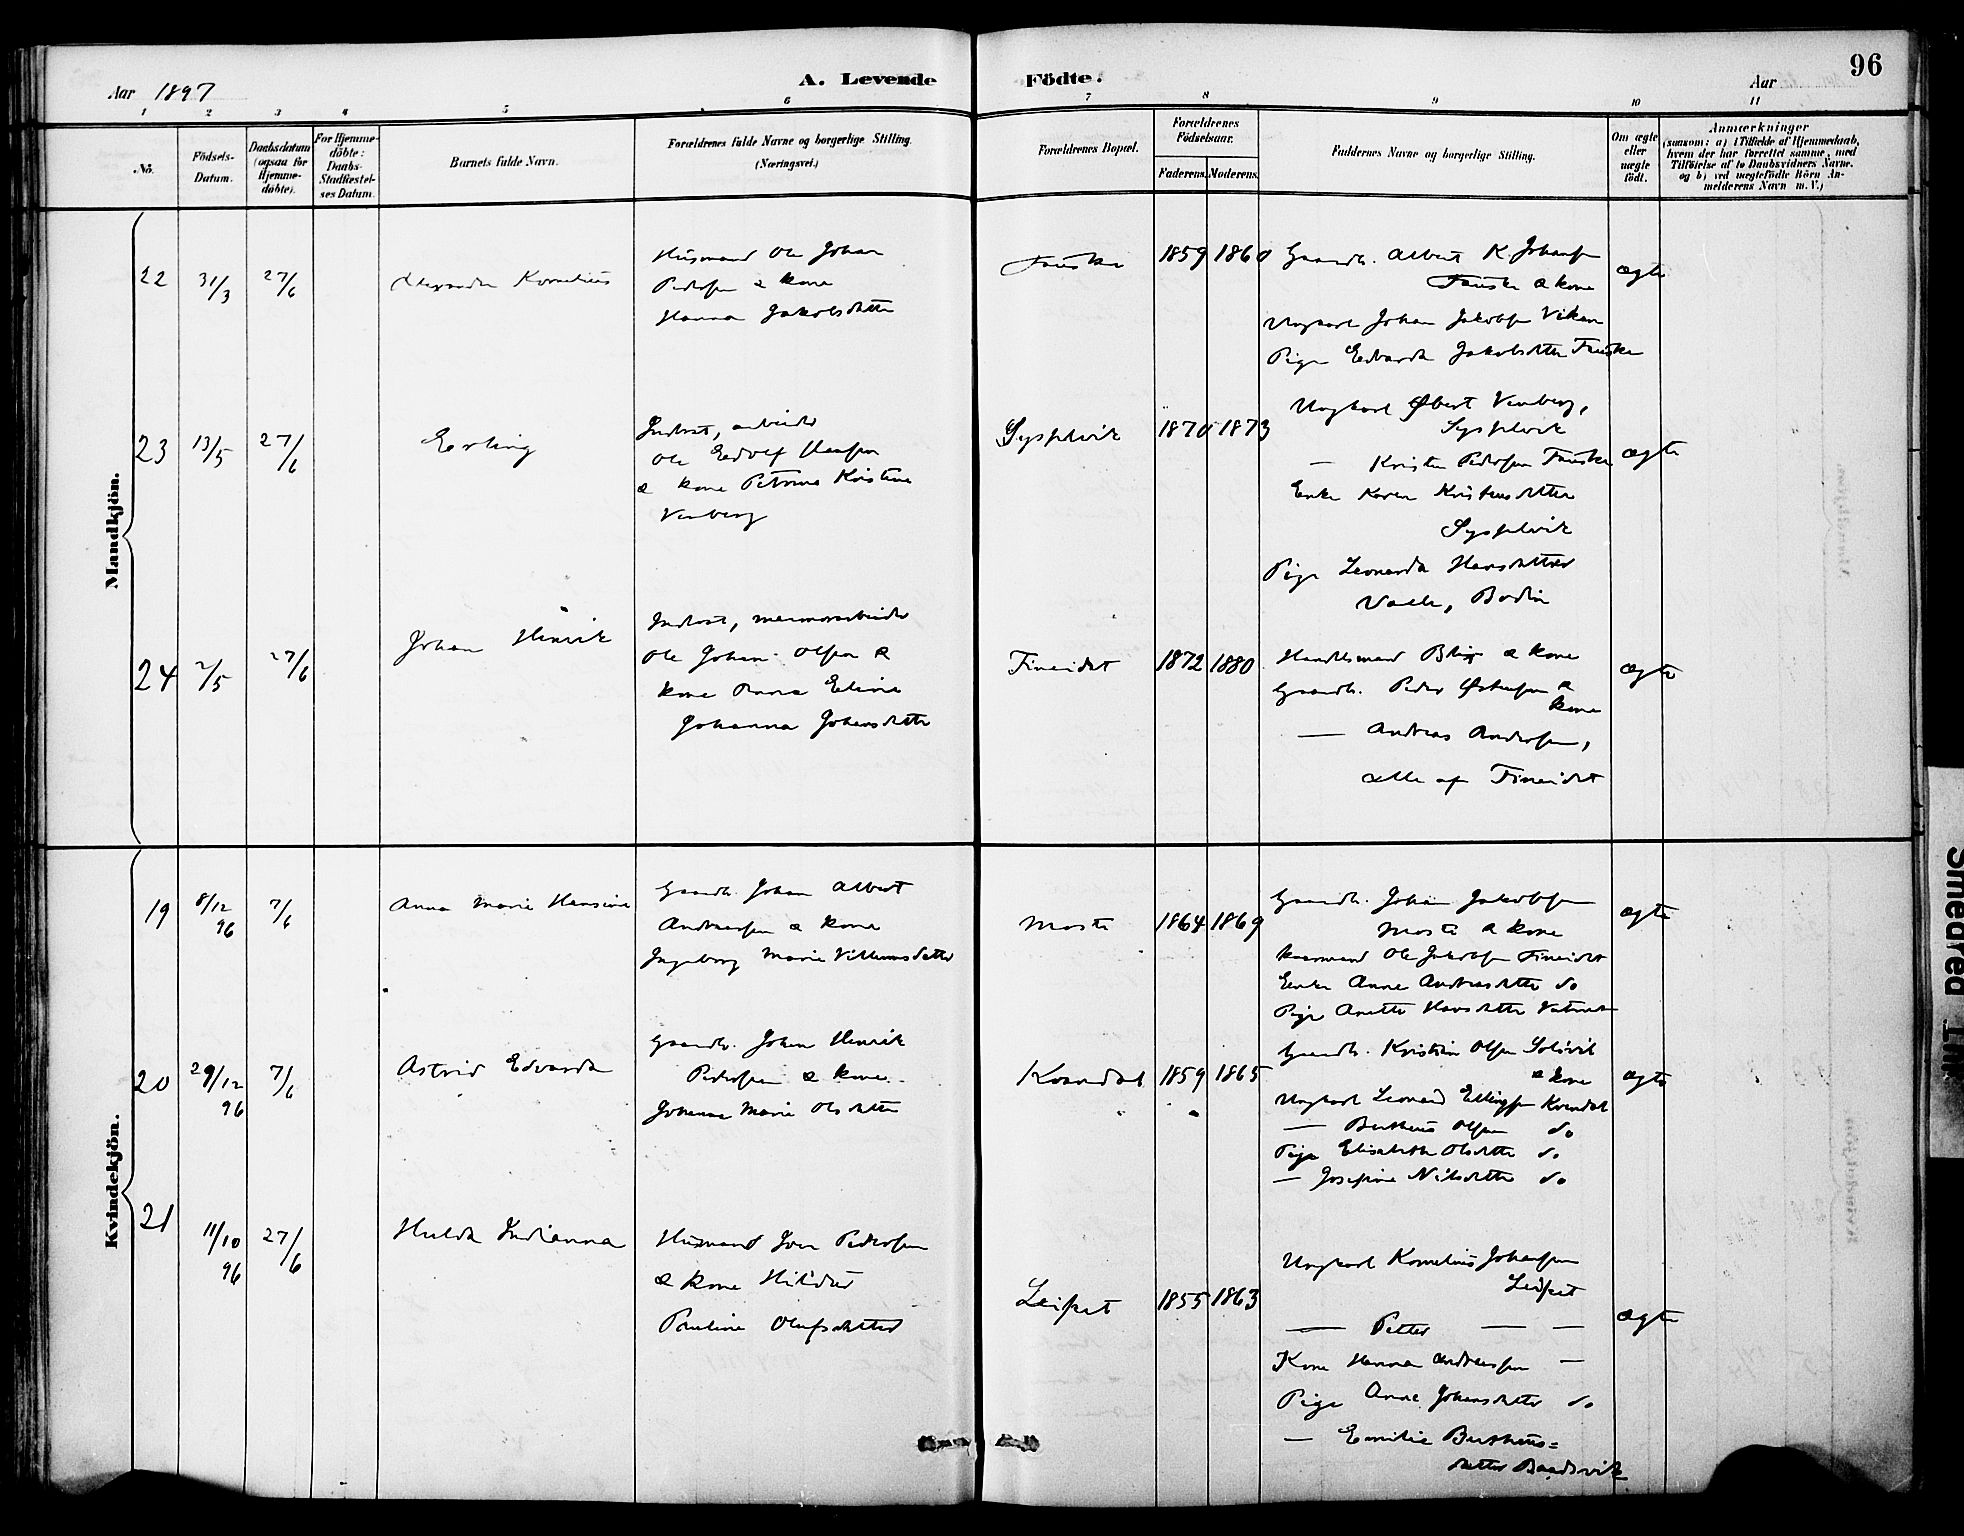 96
Aar 1897
A. Levende Födte.
Aar
1 2 3 4 5 6 7 8 9 10 11
No.
Födsels-Datum.
Daabsdatum (ogsaa for Hjemme-döbte).
For Hjemme-döbte: Daabs-Stadfæstel-ses Datum.
Barnets fulde Navn.
Forældrenes fulde Navne og borgerlige Stilling. (Næringsvei.)
Forældrenes Bopæl.
Forældrenes Födselsaar.
Faderens. Moderens.
Faddernes Navne og borgerlige Stilling.
Om ægte eller uægte födt.
Anmærkninger
(saasom: a) i Tilfælde af Hjemmedaab, hvem der har forrettet samme, med Tilföielse af to Daabsvidners Navne. og b) ved uægtefödte Börn An-melderens Navn m. V.)
Mandkjön.
22 31/3 27/6
Alexander Kornelius
Husmand Ole Johan
Pedersen & kone
Hanna Jakobsdatter
Fauske
1859 1860
Gaardb. Albert K. Johansen
Fauske & kone
Ungkarl Johan Jakobsen Viken
Pige Edvarda Jakobsdatter Fauske
ægte
23 13/5 27/6
Erling
Inderst, arbeider
Ole Edolf Hansen
& kone Petrine Kristine
Venberg
Sysselvik
1870 1873
Ungkarl Øbert Venberg,
Sysselvik
— Kristen Pedersen Fauske
Enke Karen Kristensdatter
Sysselvik
Pige Leonarda Hansdatter
Valle, Bodin
ægte
24 2/5 27/6
Johan Henrik
Inderst, marmorarbeider
Ole Johan Olsen &
kone Anna Eline
Johanna Johansdatter
Fineidet
1872 1880
Handelsmand Blix & kone
Gaardb. Peder Østensen &
kone
— Andreas Andersen,
alle af Fineidet
ægte
Kvindekjön.
19 8/12 96 7/6
Anna Marie Hansine
Gaardb. Johan Albert
Andreassen & kone
Ingeborg Marie Villumsdatter
Moste
1864 1869
Gaardb. Johan Jakobsen
Moste & kone
Kaarmand Ole Jakobsen Fineidet
Enke Anne Andreasdatter do
Pige Anette Hansdatter Vatnet
ægte
20 29/12 96 7/6
Astrid Edvarda
Gaardb. Johan Henrik
Pedersen & kone
Johanna Marie Olsdatter
Kvændal
1859 1865
Gaardb. Kristian Olsen Solvik
& kone
Ungkarl Leonard Ellingsen Kvendal
— Bertheus Olsen do
Pige Elisabeth Olsdatter do
— Josefine Nilsdatter do
ægte
21 11/10 96 27/6
Hulda Indianna
Husmand Iver Pedersen
& kone Hildur
Pauline Olufsdatter
Leifset
1855 1863
Ungkarl Kornelius Johansen
Leifset
— Petter — —
Kone Hanna Andreassen —
Pige Anne Johansdatter do
— Emilie Bertheus=
datter Baadsvik
ægte
Smeared